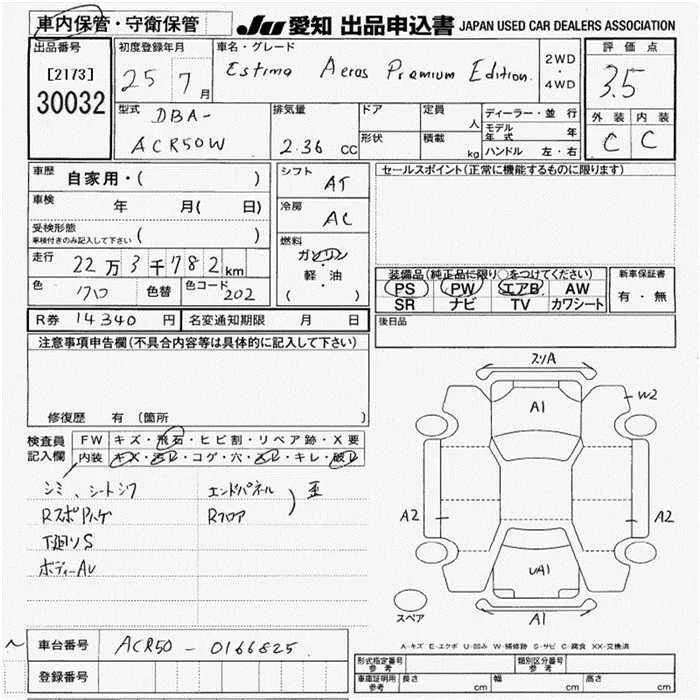 車内保管・守衛保管
JU 愛知 出品申込書 JAPAN USED CAR DEALERS ASSOCIATION
出品番号
[2173]
30032
初度登録年月
25 7月
車名・グレード
Estima Aeras Premium Edition.
2WD
・
4WD
評価点
3.5
外装 内装
C C
型式
DBA-
ACR50W
排気量
2.36 cc
ドア
形状
定員
人
積載
kg
ディーラー・並行
モデル年式 年
ハンドル 左・右
車歴 自家用・( )
車検 年 月( 日)
受検形態
車検付きのみ記入して下さい ( )
走行 22万3千782km
色 色替 色コード 202
シフト AT
冷房 AC
燃料
ガソリン
軽・油
( )
セールスポイント(正常に機能するものに限ります)
装備品(純正品に限り○をつけてください)
PS PW エアB AW
SR ナビ TV カワシート
新車保証書
有・無
R券 14340円 名変通知期限 月 日
後日品
注意事項申告欄(不具合内容等は具体的に記入して下さい)
修復歴 有(箇所 )
検査員
記入欄
FW キズ・飛石・ヒビ割・リペア跡・X要
内装 キズ・汚レ・コゲ・穴・スレ・キレ・破レ
シミ、シートシワ
エンドパネル
Rフロア
歪
下廻りS
ボディーAU
スリA
A1
W2
A2
A2
UA1
A1
スペア
A-キズ E-エクボ U-凹み W-補修跡 S-サビ C-腐食 XX-交換済
車台番号 ACR50-0166825
登録番号
形式指定番号
参考
類別区分番号
参考
車庫証明用
参考
長さ cm
幅 cm
高さ cm